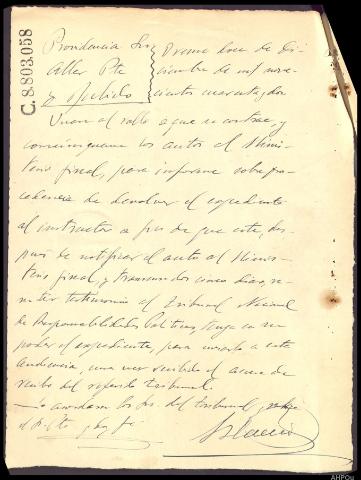 C.8.803.058
Providencia Sres
Aller Pte
y
Orense trece de Di-
ciembre de mil nove-
cientos cuarenta y dos
Unan al rollo a que se contrae, y
comuniquense los autos al Minis-
terio fiscal, para informe sobre pro-
cedencia de devolver el expediente
al instructor a fin de que este, des-
pues de notificar el auto al Minis-
terio fiscal, y transcurridos cinco dias, re-
mitir testimonio al Tribunal Nacional
de Responsabilidades Politicas, tenga en su
poder el expediente, para enviarlo a esta
Audiencia, una vez recibido el acuse de
recibo del referido tribunal
acordaron los Sres. del tribunal y rubrica
el Sr. Pte y doy fe
AHPOu